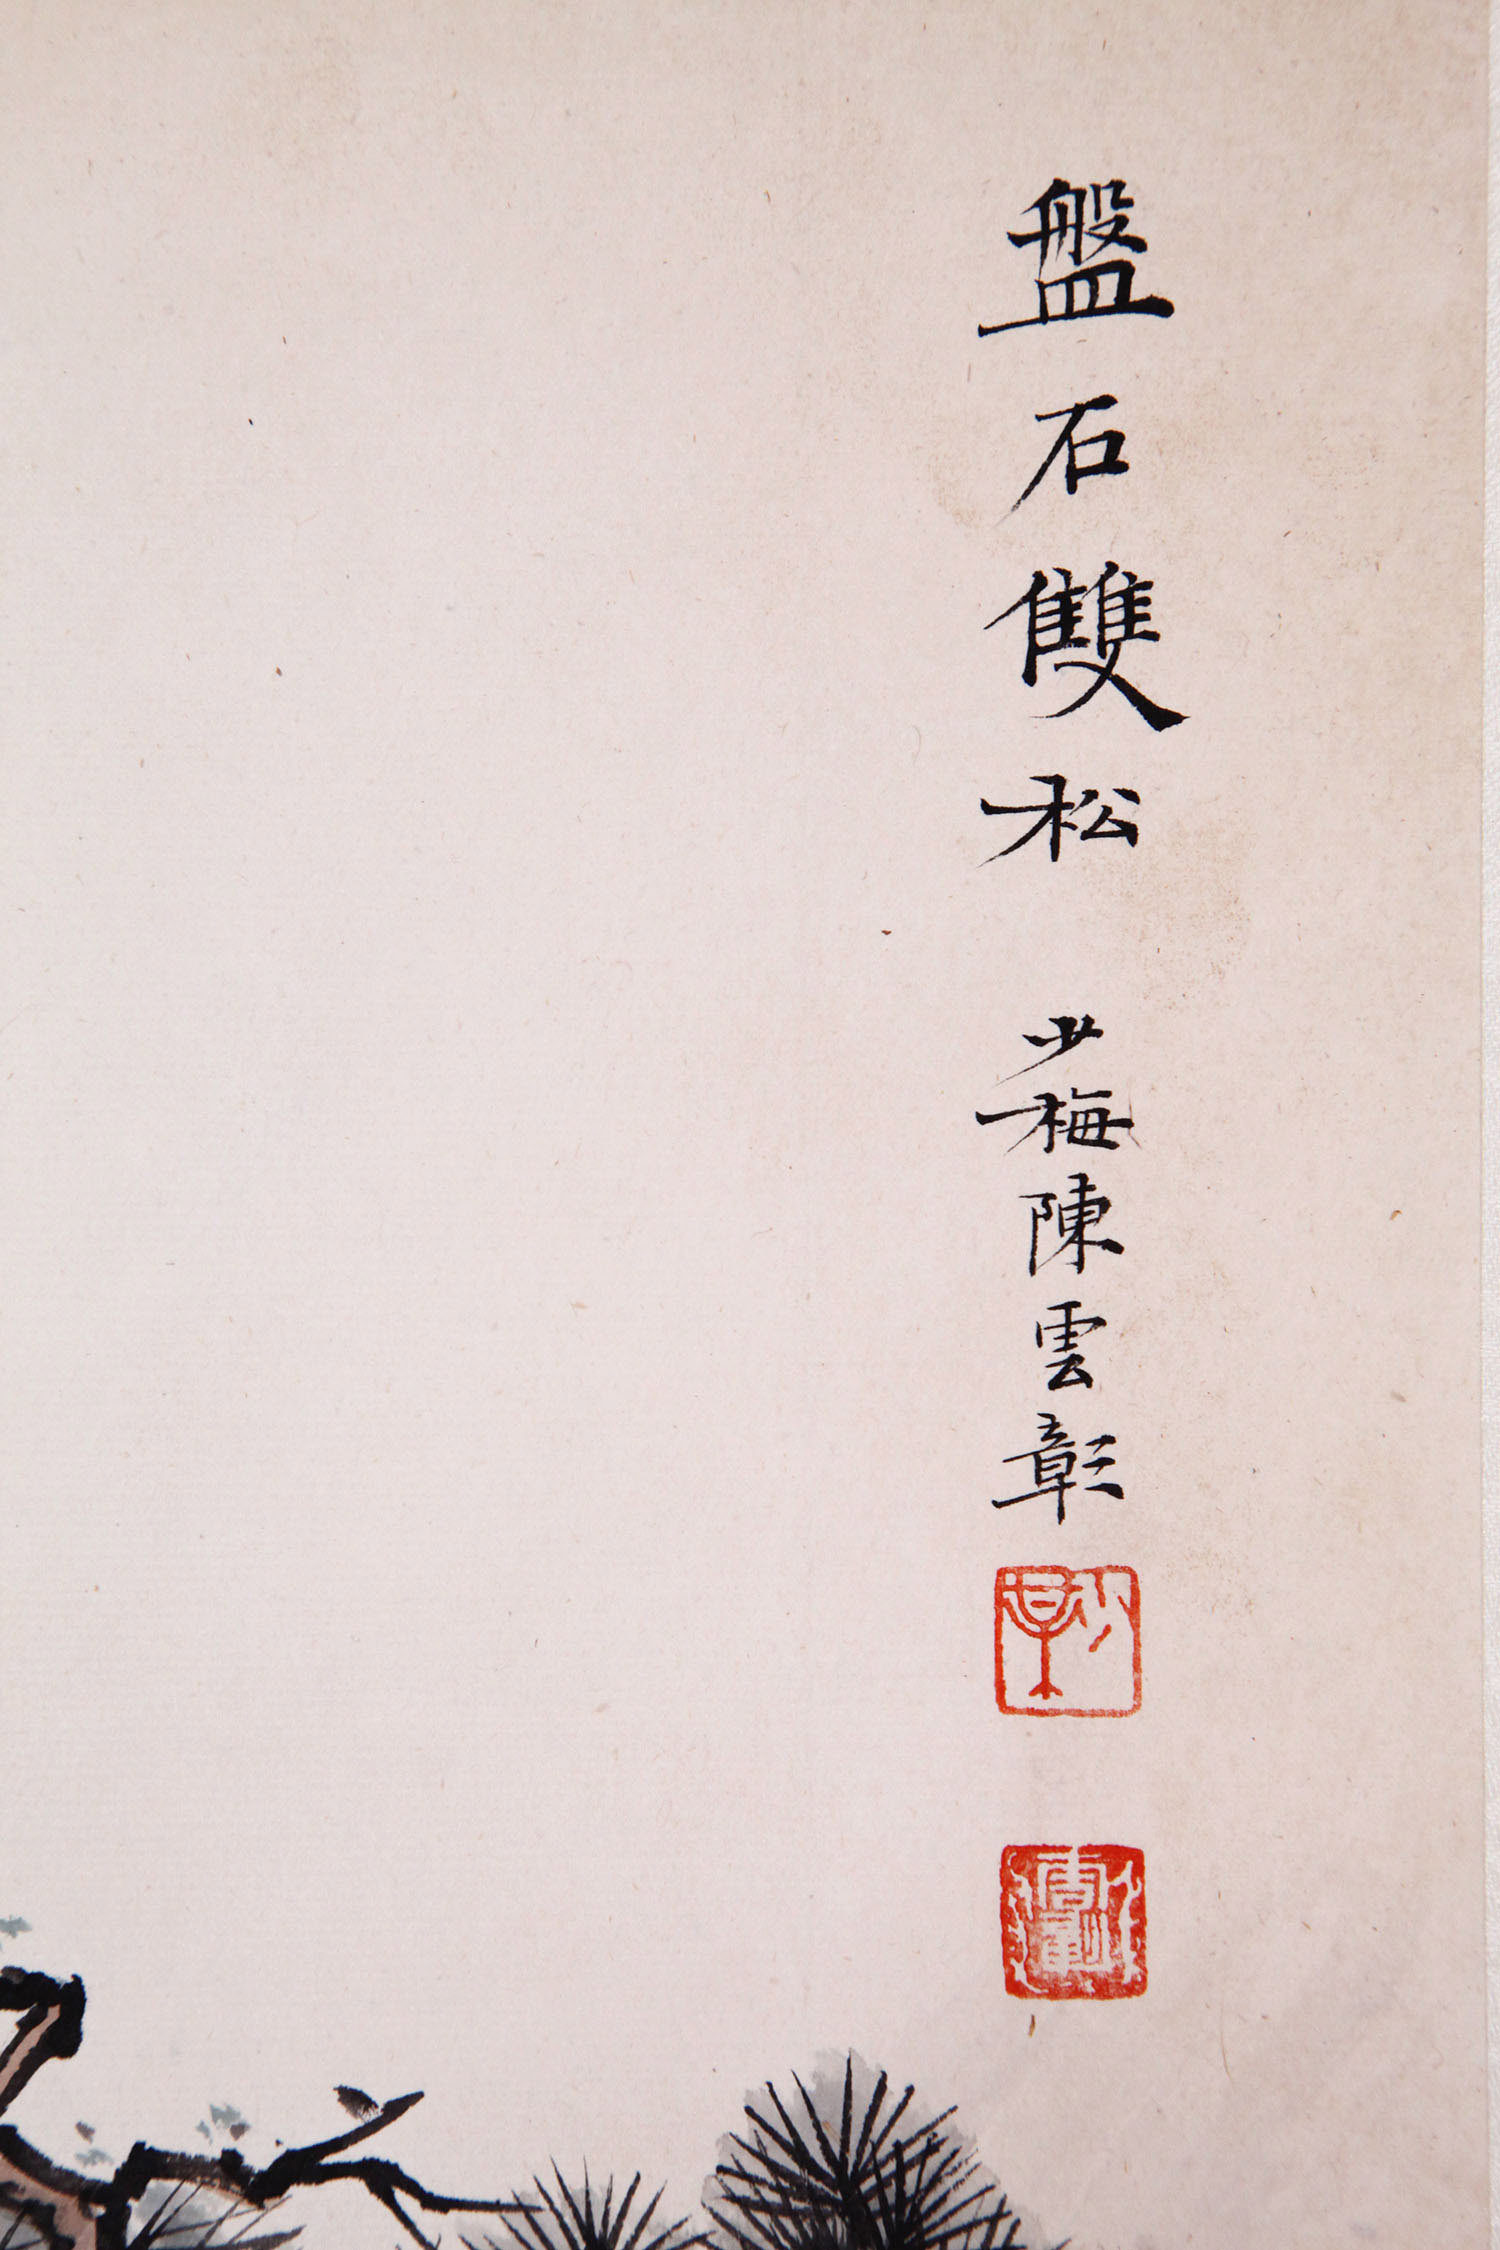 盤石雙松 少梅陳雲彰